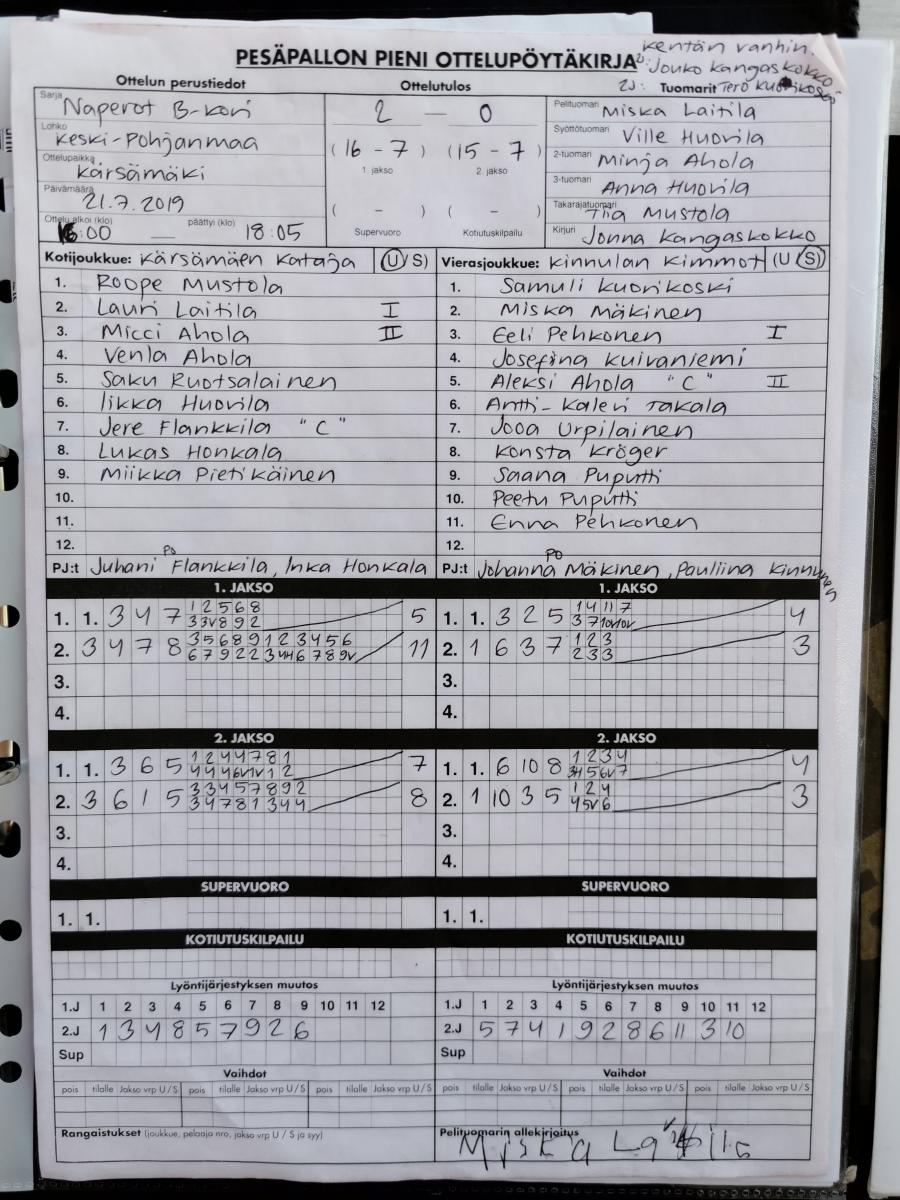 PESÄPALLON PIENI OTTELUPÖYTÄKIRJA
kentän vanhin:
Jouko Kangaskokko
2J: Tero Kuorikoski
Ottelun perustiedot
Ottelutulos
Tuomarit
Sarja Naperot B-kori
Lohko Keski-Pohjanmaa
Ottelupaikka Kärsämäki
Päivämäärä 21.7.2019
Ottelu alkoi (klo) 16:00 — päättyi (klo) 18:05
2 — 0
(16 - 7) (15 - 7)
1. jakso 2. jakso
( - ) ( - )
Supervuoro Kotiutuskilpailu
Pelituomari Miska Laitila
Syöttötuomari Ville Huovila
2-tuomari Minja Ahola
3-tuomari Anna Huovila
Takarajatuomari Tiia Mustola
Kirjuri Jonna Kangaskokko
Kotijoukkue: Kärsämäen Kataja (U/S)
1. Roope Mustola
2. Lauri Laitila I
3. Micci Ahola II
4. Venla Ahola
5. Saku Ruotsalainen
6. Iikka Huovila
7. Jere Flankkila "C"
8. Lukas Honkala
9. Miikka Pietikäinen
10.
11.
12.
PJ:t Juhani Flankkila, Inka Honkala
PO
Vierasjoukkue: Kinnulan Kimmot (U S)
1. Samuli Kuorikoski
2. Miska Mäkinen
3. Eeli Pehkonen I
4. Josefina Kuivaniemi
5. Aleksi Ahola "C" II
6. Antti-Kaleri Takala
7. Jooa Urpilainen
8. Konsta Kröger
9. Saana Puputti
10. Peetu Puputti
11. Enna Pehkonen
12.
PJ:t Johanna Mäkinen, Pauliina Kinnunen
PO
1. JAKSO
1. 1. 3 4 7 1 2 5 6 8 5
3 3v 8 9 2
2. 3 4 7 8 3 5 6 8 9 1 2 3 4 5 6 11
6 7 9 2 2 3 4 4 6 7 8 9v
3.
4.
1. JAKSO
1. 1. 3 2 5 1 4 11 7 4
3 7 10v 10v
2. 1 6 3 7 1 2 3 3
2 3 3
3.
4.
2. JAKSO
1. 1. 3 6 5 1 2 4 4 7 8 1 7
4 4 4 6v 1v 1 2
2. 3 6 1 5 3 3 4 5 7 8 9 2 8
3 4 7 8 1 3 4 4
3.
4.
2. JAKSO
1. 1. 6 10 8 1 2 3 4 4
3 4 5 6v 7
2. 1 10 3 5 1 2 4 3
4 5v 6
3.
4.
SUPERVUORO
1. 1.
SUPERVUORO
1. 1.
KOTIUTUSKILPAILU
KOTIUTUSKILPAILU
Lyöntijärjestyksen muutos
1.J 1 2 3 4 5 6 7 8 9 10 11 12
2.J 1 3 4 8 5 7 9 2 6
Sup
Lyöntijärjestyksen muutos
1.J 1 2 3 4 5 6 7 8 9 10 11 12
2.J 5 7 4 1 9 2 8 6 11 3 10
Sup
Vaihdot
pois tilalle Jakso vrp U/S pois tilalle Jakso vrp U/S pois tilalle Jakso vrp U/S
Vaihdot
pois tilalle Jakso vrp U/S pois tilalle Jakso vrp U/S pois tilalle Jakso vrp U/S
Rangaistukset (joukkue, pelaaja nro, jakso vrp U / S ja syy)
Pelituomarin allekirjoitus
Miska Laitila